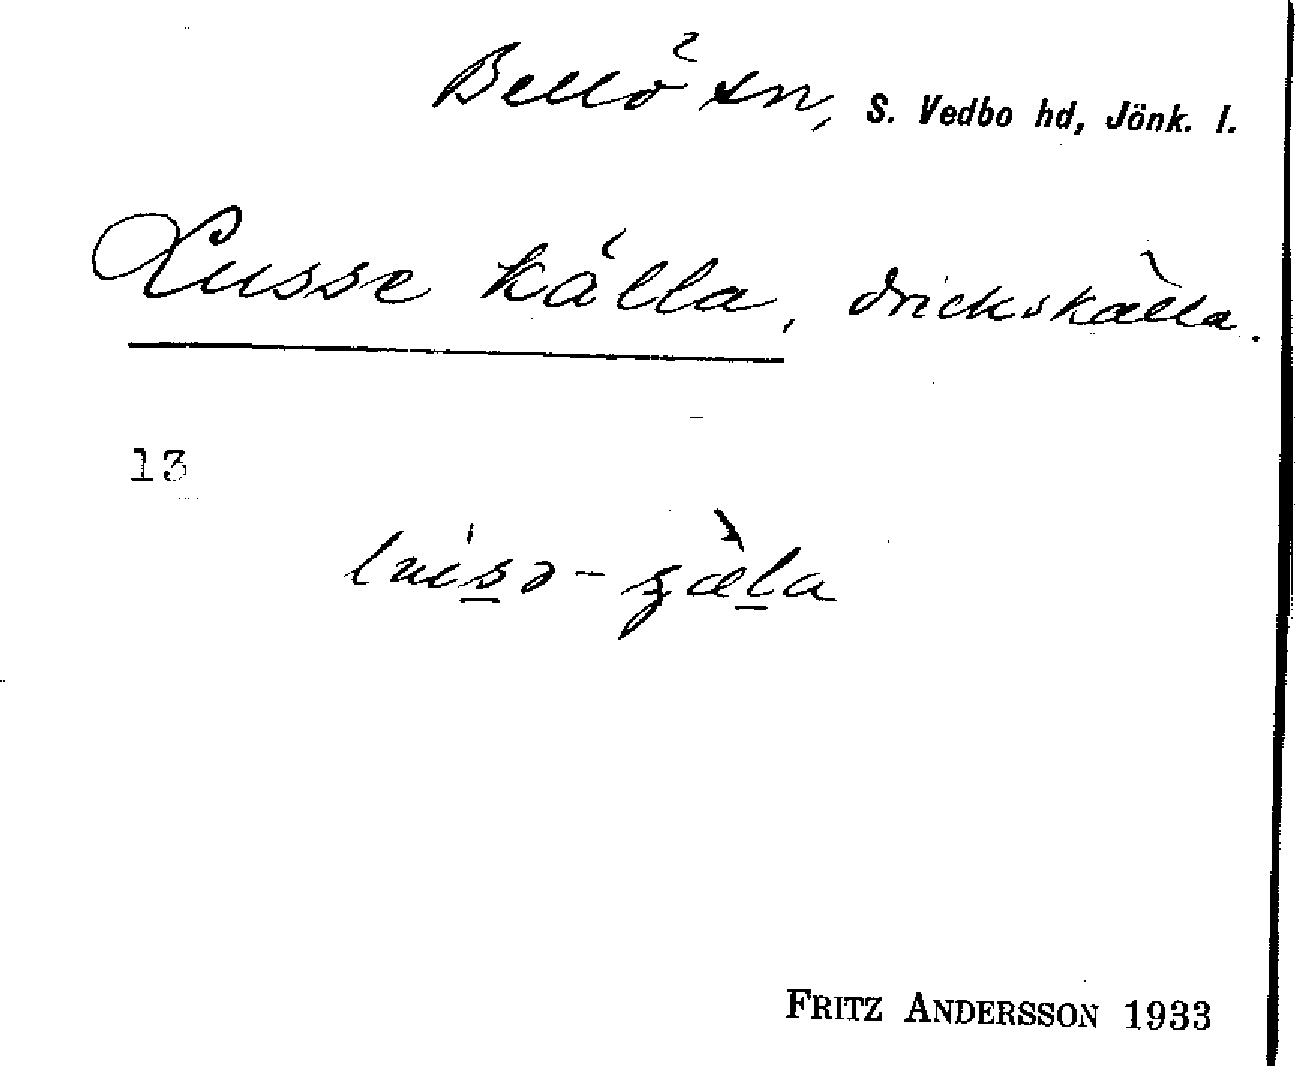 Bellö sn, S. Vedbo hd, Jönk. l.
Lusse källa, drickskälla.
13
FRITZ ANDERSSON 1933